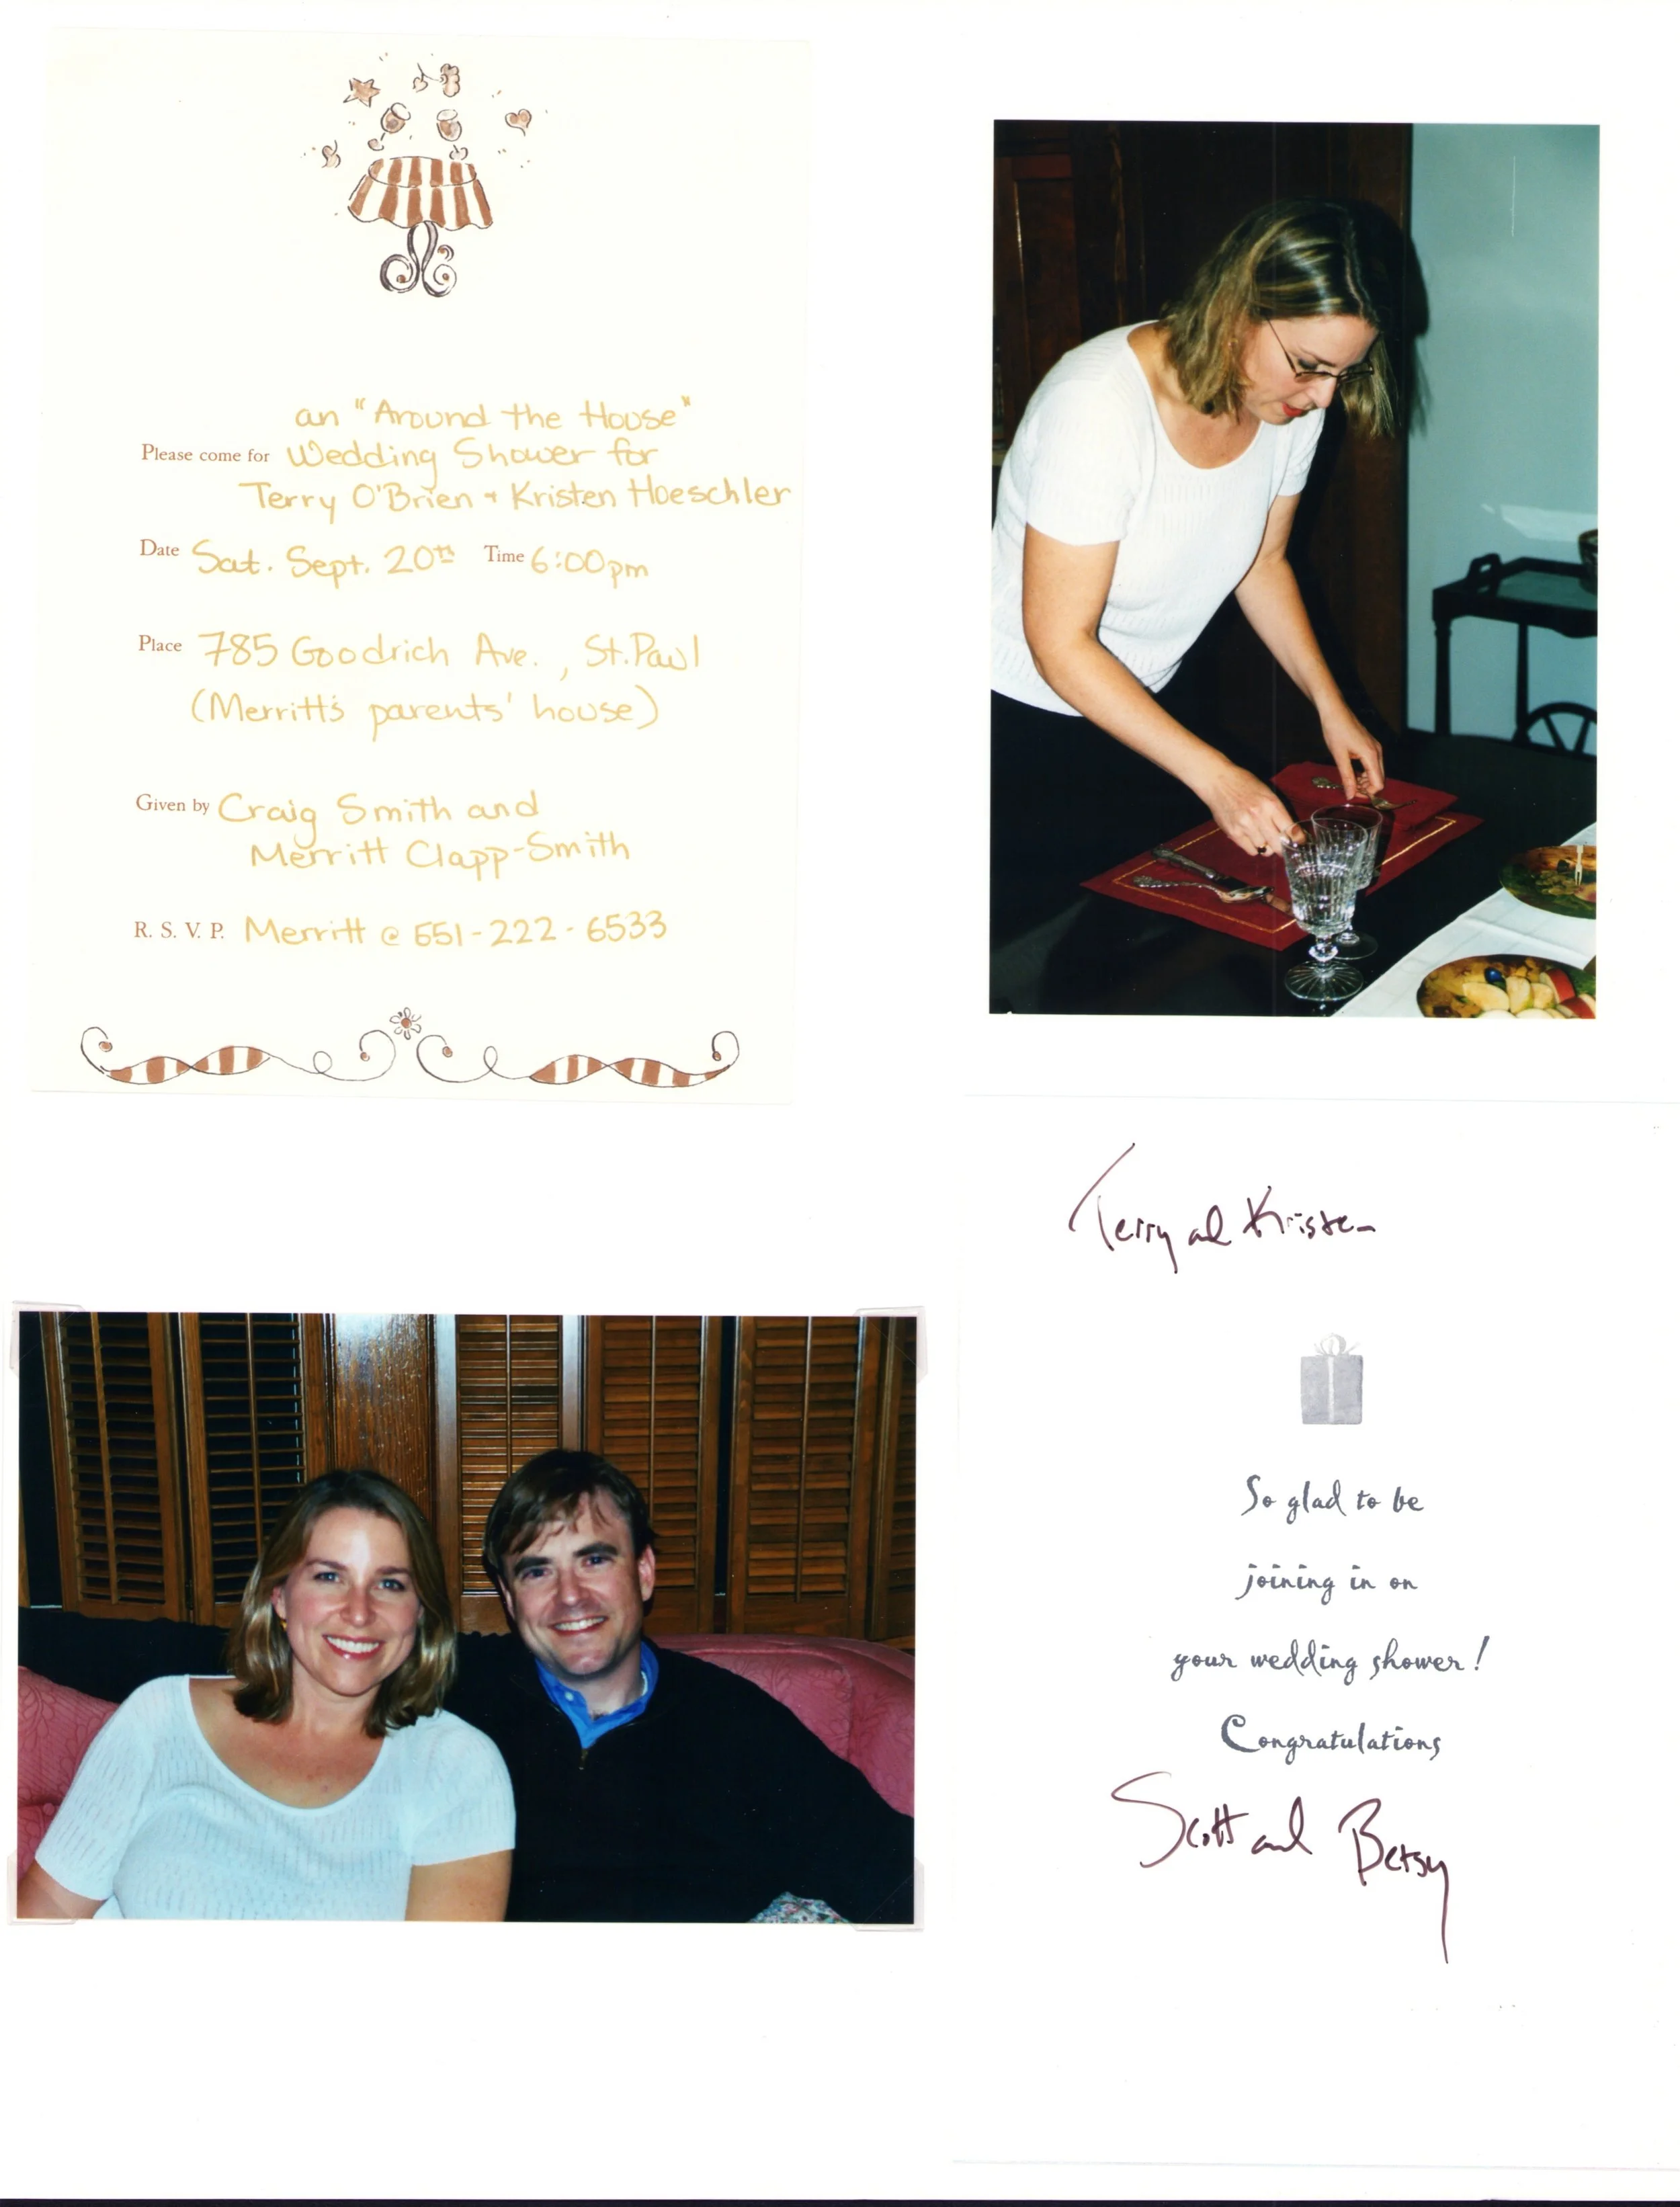 an "Around the House"
Please come for Wedding Shower for
Terry O'Brien + Kristen Hoeschler
Date Sat. Sept. 20th Time 6:00pm
Place 785 Goodrich Ave., St. Paul
(Merritt's parents' house)
Given by Craig Smith and
Merritt Clapp-Smith
R. S. V. P. Merritt @ 651-222-6533
Terry and Kristen
So glad to be
joining in on
your wedding shower!
Congratulations
Scott and Betsy